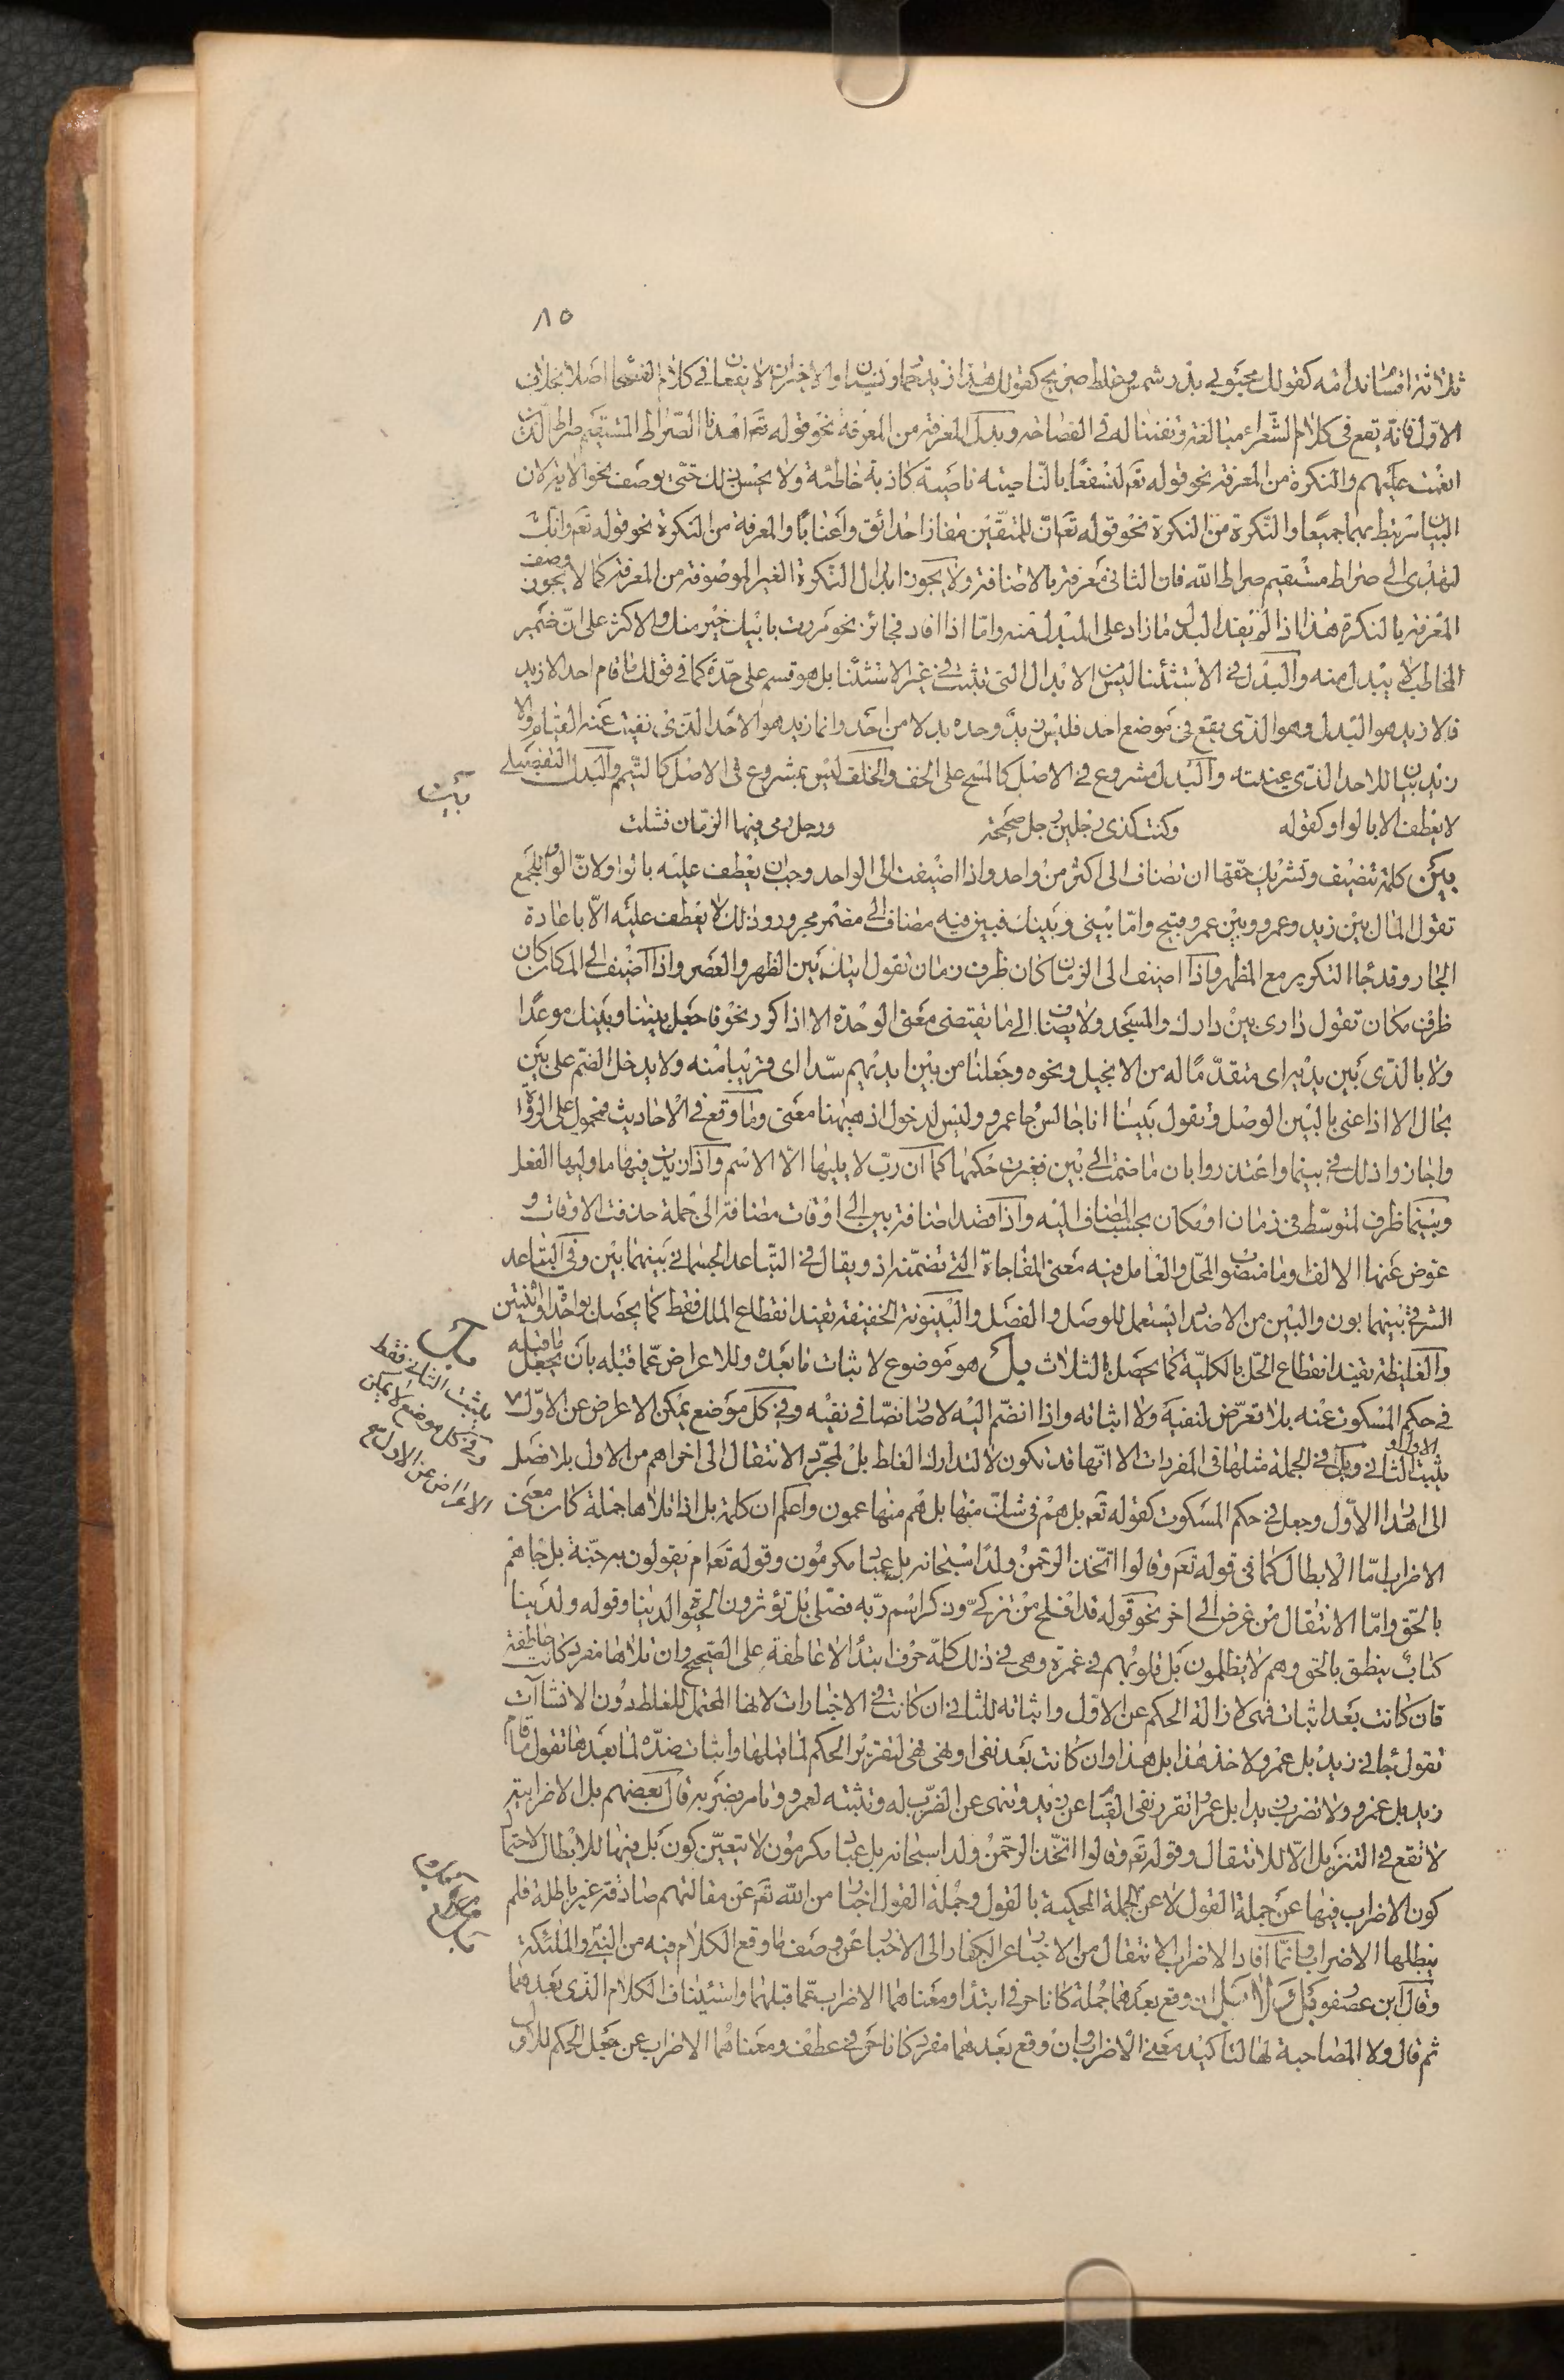 ٨٥
ثلاثة اقسام ندامة كقولك محبوبي بدر شمس وغلط صريح كقولك هذا زيد حمار ونسيان والاخيران لا يقعان في كلام الفصحا اصلا بخلاف
الاوّل فانّه يقع في كلام الشعراء مبالغة وتفننا له في الفصاحة وبدل المعرفة من المعرفة نحو قوله تعم اهدنا الصّراط المستقيم صراط الّذين
انعمت عليهم والنكرة من المعرفة نحو قوله تعم لنسفعًا بالنّاصية ناصية كاذبة خاطئة ولا يحسن ذلك حتّى يوصف نحو الاية لان
البيان مرتبط بهما جميعا والنّكرة من النكرة نحو قوله تعم انّ للمتّقين مفازا حدائق واعنابًا والمعرفة من النكرة نحو قوله تعم وانّك
لتهدى الى صراط مستقيم صراط الله فان الثانى معرفة بالاضافة ولا يجوز ابدال النّكرة الغير الموصوفة من المعرفة كما لا يجوز وصف
المعرفة بالنكرة هذا اذا لم يفد البدل ما زاد على المبدل منه وامّا اذا افاد فجائز نحو مررت بابيك خير منك والاكثر على انّ ضمير
المخاطب لا يبدل منه والبدل في الاستثنا ليس من الابدال التى تثبت في غير الاستثنا بل هو قسم على حدة كما في قولك ما قام احد الا زيد
فالا زيد هو البدل وهو الذى يقع في موضع احد فليس زيد وحده بدلا من احد وانما زيد هو الاحد الذى نفيت عنه القيام والا
زيد بيان للاحد الذى عينته والبدل مشروع في الاصل كالمسح على الخف والخلف ليس بمشروع في الاصل كالتيمم والبدل التفصيلى
لا يعطف الا بالواو كقوله وكنت كذى رجلين رجل صحيحة ورجل رمى فيها الزمان فشلت
بين كلمة تنصيف وتشريك حقّها ان تضاف الى اكثر من واحد واذا اضيفت الى الواحد وجب ان يعطف عليه بالواو لانّ الواو للجمع
تقول المال بين زيد وعمرو وبين عمرو قبيح وامّا بينى وبينك فبين فيه مضاف الى مضمر مجرور وذلك لا يعطف عليه الّا باعادة
الجار وقد جاء التكرير مع المظهر واذا اضيف الى الزمان كان ظرف زمان تقول اتيتك بين الظهر والعصر واذا اضيف الى المكان كان
ظرف مكان تقول دارى بين دارك والمسجد ولا يضاف الى ما يقتضى معنى الوحدة الا اذا كرر نحو فاجعل بيننا وبينك موعدًا
ولا بالذى بين يديه اى متقدّمًا له من الانجيل ونحوه وجعلنا من بين ايديهم سدّا اى قريبا منه ولا يدخل الضّم على بين
بحال الا اذا عنى بالبين الوصل وتقول بينا انا جالس جا عمرو وليس لدخول اذ هيهنا معنى وما وقع في الاحاديث فمحمول على الرواة
واجازوا ذلك في بينما واعتذروا بان ما ضمت الى بين فغيرت حكمها كما ان ربّ لا يليها الّا الاسم واذا زيدت فيها ما وليها الفعل
وبينما ظرف لمتوسّط في زمان او مكان بحسب المضاف اليه واذا قصد اضافة بين الى اوقات مضافة الى جملة حذفت الاوقات و
عوض عنها الالف وما منصوب المحلّ والعامل فيه معنى المفاجاة التى تضمّنه اذ ويقال في التباعد الجسمانى بينهما بين وفي التباعد
الشرفى بينهما بون والبين من الاضداد يستعمل للوصل والفصل والبينونة الخفيفة تفيد انقطاع الملك فقط كما يحصل بواحدة او اثنتين
والغليظة تفيد انقطاع الحلّ بالكليّة كما يحصل بالثلاث بل هو موضوع لاثبات ما بعده وللاعراض عمّا قبله بان يجعل ما قبله
في حكم المسكوت عنه بلا تعرّض لنفيه ولا اثباته واذا انضمّ اليه لا صار نصّا في نفيه وفي كل موضع يمكن الاعراض عن الاوّل
يثبت الثانى وبل في الجملة مثلها في المفردات الا انّها قد تكون لا لتدارك الغلط بل لمجرّد الانتقال الى اخر اهم من الاول بلا قصد
الى اهدار الاوّل وجعل في حكم المسكوت كقوله تعم بل هم في شك منها بل هم منها عمون واعلم ان كلمة بل اذا تلاها جملة كان معنى
الاضراب امّا الابطال كما في قوله تعم وقالوا اتّخذ الرحمن ولدًا سبحانه بل عباد مكرمون وقوله تعم ام يقولون به جنّة بل جاهم
بالحق وامّا الانتقال من غرض الى اخر نحو قوله قد افلح من تزكّى وذكر اسم ربّه فصلّى بل تؤثرون الحيوة الدنيا وقوله ولدينا
كتاب ينطق بالحق وهم لا يظلمون بل قلوبهم في غمرة وهى في ذلك كلّه حرف ابتدا لا عاطفة على الصّحيح وان تلاها مفرد كانت عاطفة
فان كانت بعد اثبات فهى لازالة الحكم عن الاوّل واثباته للثانى ان كانت في الاخبارات لانها المحتمل للغلط دون الانشاآت
تقول جانى زيد بل عمرو لا خذ هذا بل هذا وان كانت بعد نفى او نهى فهى لتقرير الحكم لما قبلها واثبات ضدّه لما بعدها تقول ما قام
زيد بل عمرو ولا تضرب زيدا بل عمرا تقرر نفى القيام عن زيد وتنهى عن الضّرب له وتثبته لعمرو وتامر بضربه قال بعضهم بل الاضرابية
لا تقع في التنزيل الّا للانتقال وقوله تعم وقالوا اتّخذ الرحمن ولدا سبحانه بل عباد مكرمون لا يتعيّن كون بل فيها للابطال لاحتمال
كون الاضراب فيها عن جملة القول لا عن الجملة المحكية بالقول وجملة القول اخبار من الله تعم عن مقالتهم صادقة غير باطلة فلم
يبطلها الاضراب وانّما افاد الاضراب الانتقال من الاخبار عن الكفار الى الاخبار عن وصف ما وقع الكلام فيه من النبى والملئكة
وقال ابن عصفور بل ولا بل ان وقع بعدهما جملة كانا حرفى ابتدا ومعناهما الاضراب عمّا قبلهما واستيناف الكلام الذى بعدهما
ثم قال ولا المصاحبة لها لتاكيد معنى الاضراب وان وقع بعدهما مفرد كانا حرفى عطف ومعناهما الاضراب عن جعل الحكم للاول
بين
بل
يثبت الثانى فقط
وفي كل موضع لا يمكن
الاعراض عن الاول